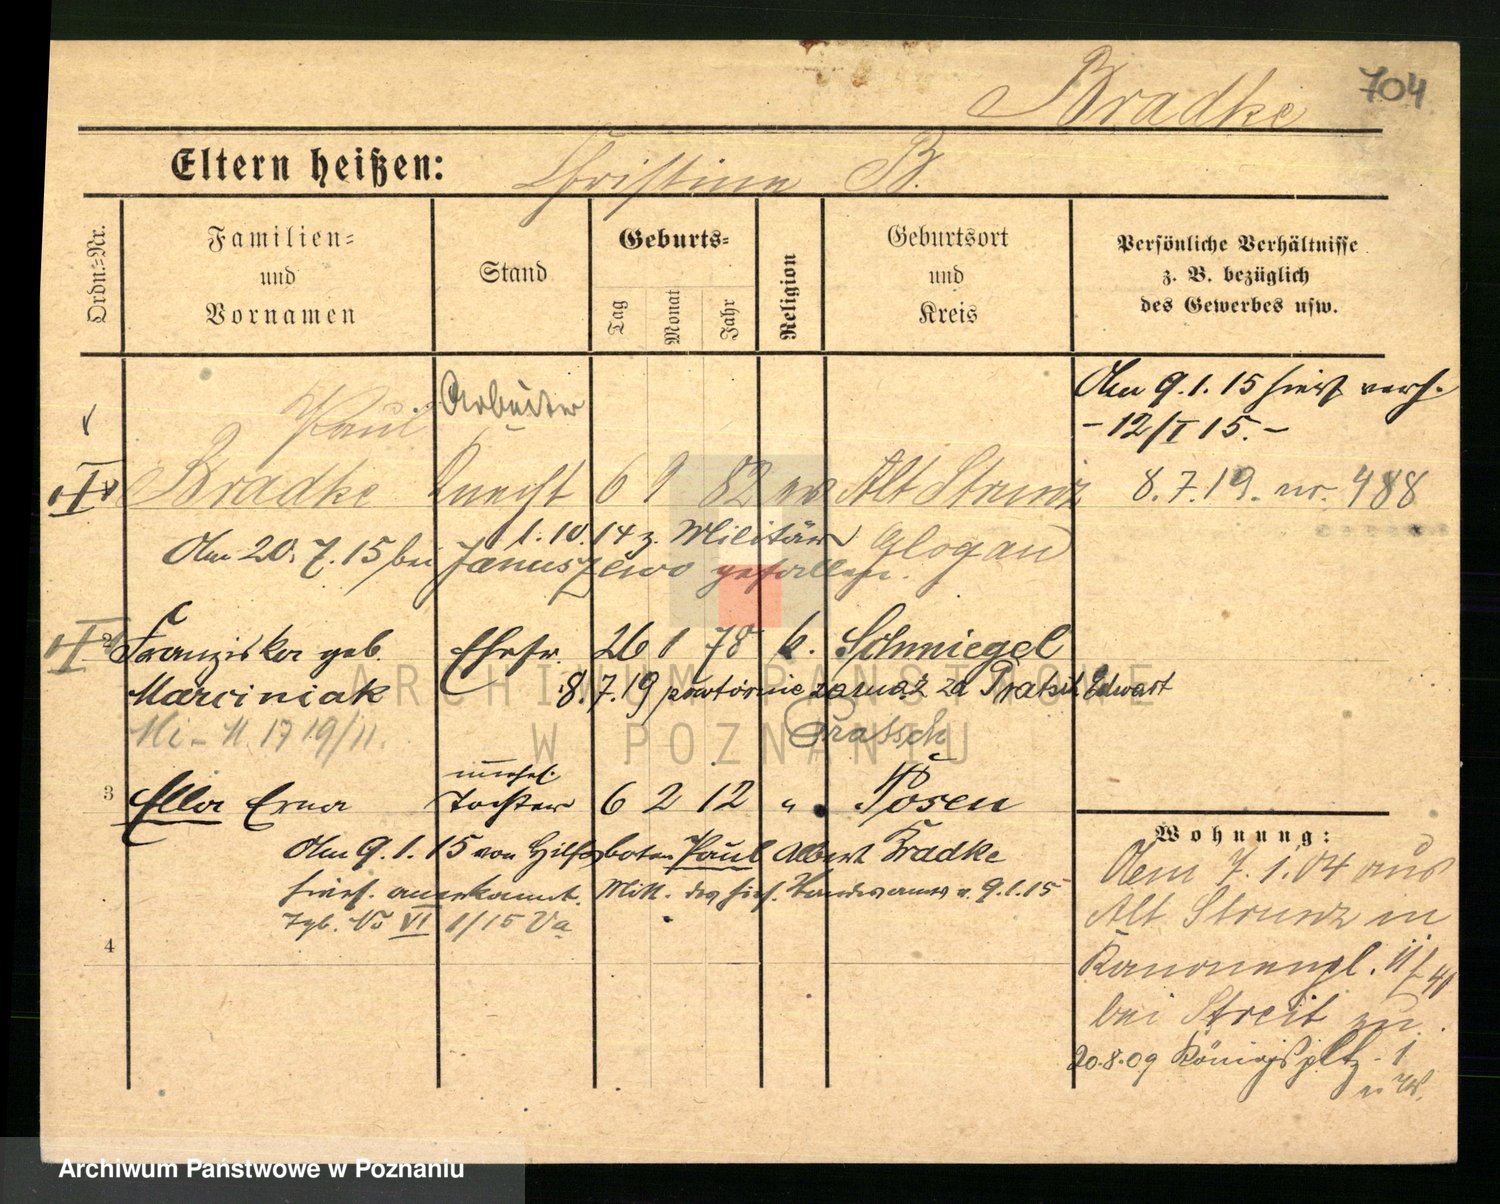 Bradke
704
Eltern heißen: Christine B.
Ordn.-Nr.
Familien-
und
Vornamen
Stand
Geburts-
Tag
Monat
Jahr
Religion
Geburtsort
und
Kreis
Persönliche Verhältnisse
z. B. bezüglich
des Gewerbes usw.
Paul Arbeiter
Am 9.1.15 hier verh.
- 12/I 15. -
Bradke Knecht 6 9 82 ev Alt Strunz
8.7.19. nr. 488
1.10.14 z. Militär Glogau
Am 20.7.15 bei Januszewo gefallen.
2 Franziska geb. Ehefr. 26 1 78 k. Schmiegel
Marciniak 8.7.19 powtórnie zamąż za Pratsch Edwart
Pratsch
3 Ella Erna unehel. Tochter 6 2 12 " Posen
Am 9.1.15 von Hilfsboten Paul Albert Bradke
hies. anerkannt. Mitt. des hies. Standesamts v. 9.1.15
Tgb. No VI 1/15 Va
4
Wohnung:
Am 7.1.04 aus
Alt Strunz in
Kanonenpl.
bei Streit zu.
20.8.09 Königsplatz 1
ARCHIWUM PAŃSTWOWE
W POZNANIU
Archiwum Państwowe w Poznaniu